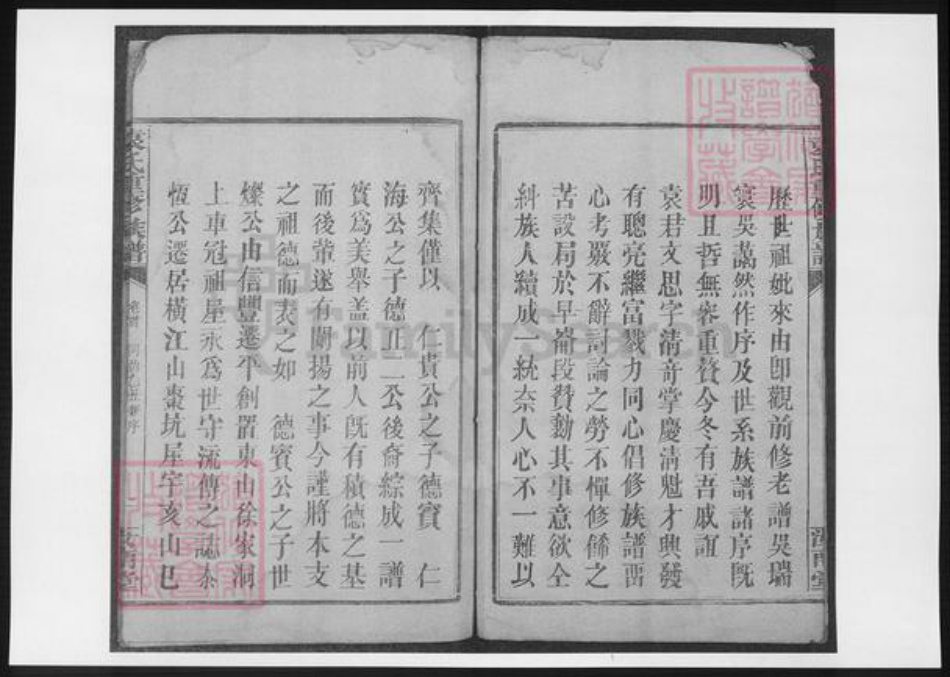 歷世祖妣來由卽觀前修老譜吳瑞
寰吳藹然作序及世系族譜諸序旣
明且哲無容重贅今冬有吾戚誼
袁君文思字清奇掌慶清魁才興發
有聰亮繼富戮力同心倡修族譜
心考覈不辭討論之勞不憚修餙之
苦設局於早崙段贊勷其事意欲仝
糾族人續成一統奈人心不一難以
齊集僅以 仁貴公之子德寶 仁
海公之子德正二公後裔綜成一譜
實爲美舉盖以前人旣有積德之基
而後輩遂有闡揚之事今謹將本支
之祖德而表之如 德賓公之子世
燦公由信豐遷平創置東山徐家洞
上車冠祖屋永爲世守流傳之誌泰
恆公遷居橫江山棗坑屋宇亥山巳
袁氏重修族譜
汝南堂
FamilySearch